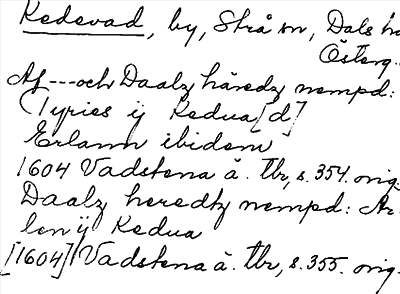 Kedevad, by, Strå sn, Dals hd
Österg.
Af---och Daalz häredz nempd:
(Tyries ij Kedua[d]
Erlann ibidem
1604 Vadstena ä. Tbr, s. 354. orig.
Daalz heredtz nempd: Ar-
len ij Kedua
[1604] Vadstena ä. Tbr, s. 355. orig.